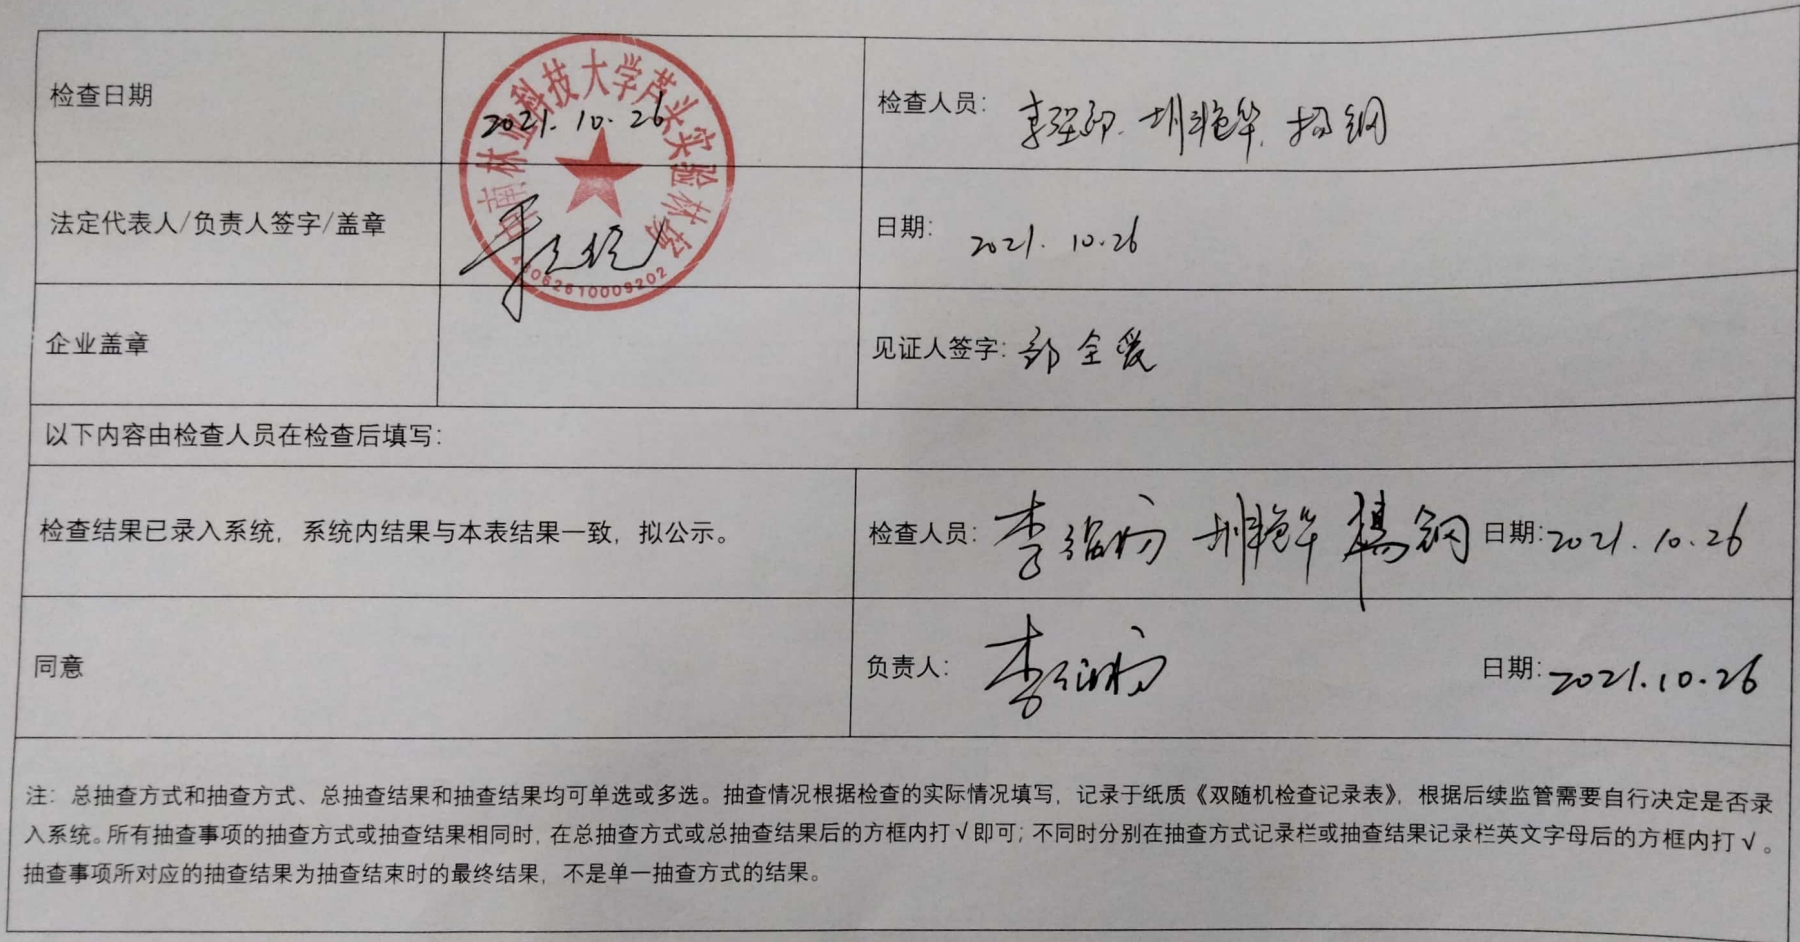 检查日期
2021.10.26
检查人员：
中南林业科技大学芦头实验林场
法定代表人/负责人签字/盖章
日期：2021.10.26
企业盖章
见证人签字：
以下内容由检查人员在检查后填写：
检查结果已录入系统，系统内结果与本表结果一致，拟公示。
检查人员：杨钢 日期：2021.10.26
同意
负责人： 日期：2021.10.26
注：总抽查方式和抽查方式、总抽查结果和抽查结果均可单选或多选。抽查情况根据检查的实际情况填写，记录于纸质《双随机检查记录表》，根据后续监管需要自行决定是否录
入系统。所有抽查事项的抽查方式或抽查结果相同时，在总抽查方式或总抽查结果后的方框内打√即可；不同时分别在抽查方式记录栏或抽查结果记录栏英文字母后的方框内打√。
抽查事项所对应的抽查结果为抽查结束时的最终结果，不是单一抽查方式的结果。